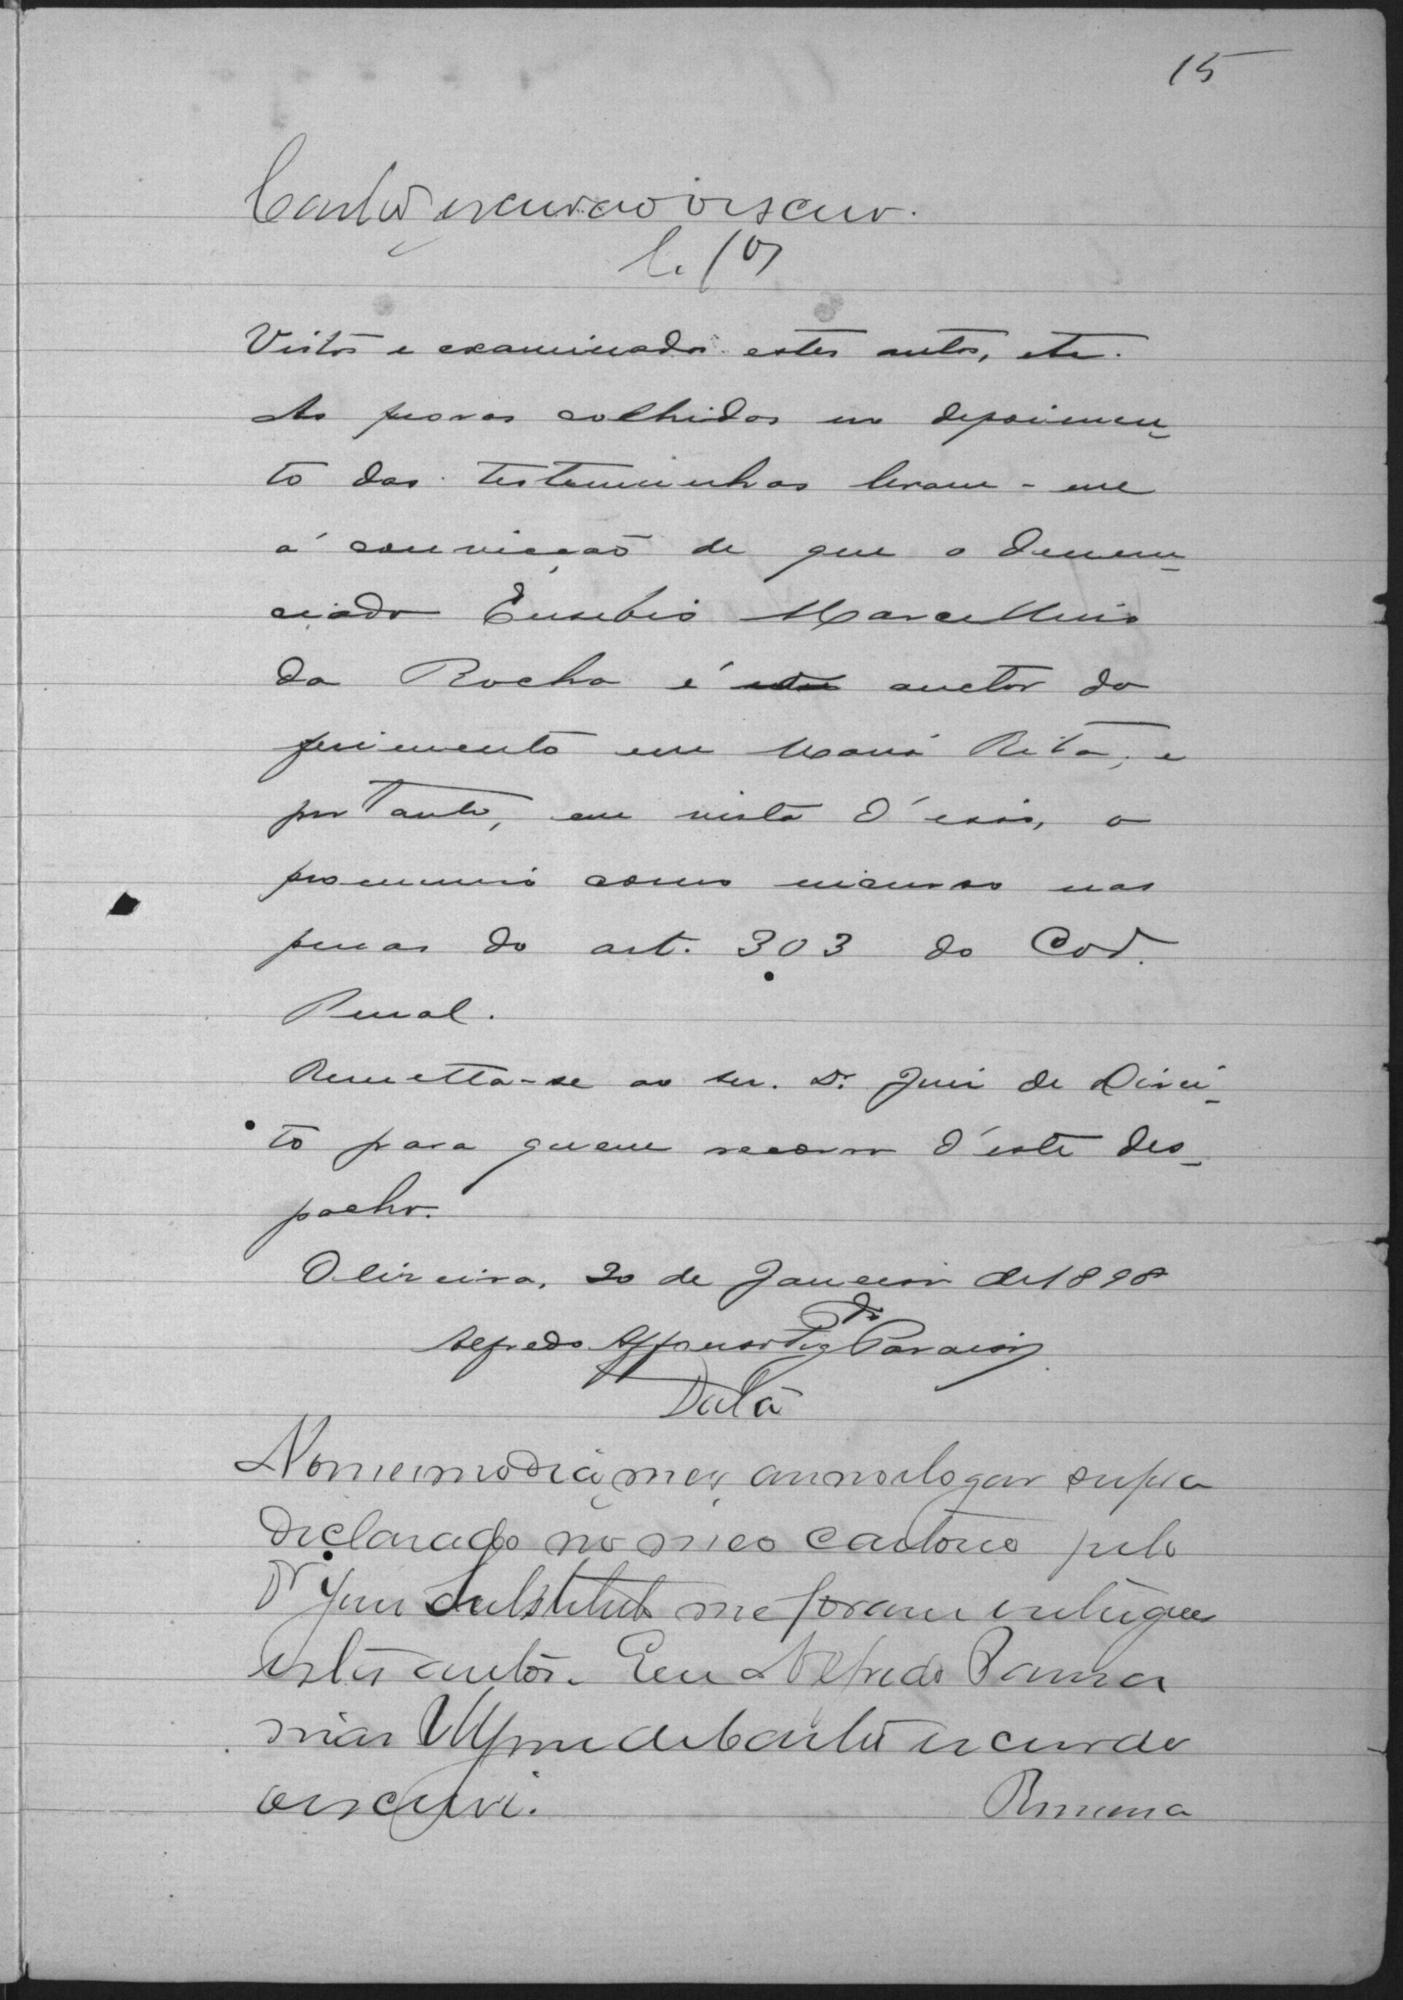 15
Castro escrivão o escrevi.
Vistos e examinados estes autos, etc.
As provas colhidas no depoimen-
to das testeminhas levam-me
á convicção de que o denun-
ciado Eusebio Marcellino
da Rocha é auctor do
ferimento em Maria Rita, e
portanto, em vista d'isso, o
pronuncio como incurso nas
penas do art. 303 do Cod.
Penal.
Remetta-se ao sr. Dr. Juiz de Direi-
to para quem recorro d'este des-
pacho.
Oliveira, 20 de Janeiro de 1898
Alfredo Affonso Paraiso
Data
No mesmo dia, mez anno e logar supra
declarado no meo cartorio pelo
Dr Juiz Substituto me foram entregues
estes autos. Eu Alfredo
de Castro escrivão
o escrevi.